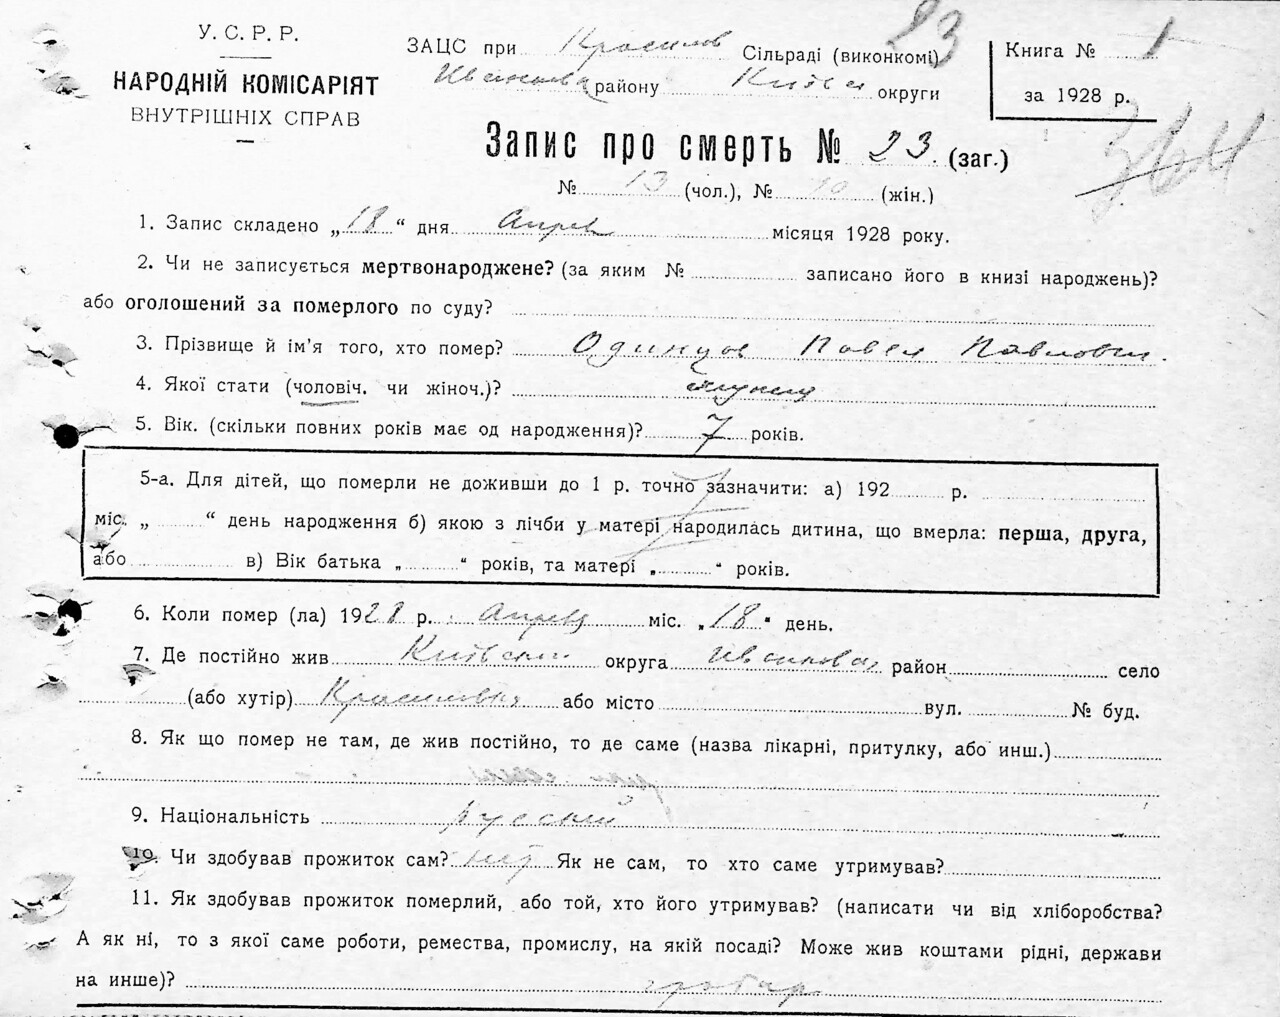 У. С. Р. Р.
НАРОДНІЙ КОМІСАРІЯТ
ВНУТРІШНІХ СПРАВ
23
ЗАЦС при Красилов Сільраді (виконкомі)
району округи
Книга № 1
за 1928 р.
Запис про смерть № 23. (заг.)
№ 13 (чол.), № 10 (жін.)
1. Запис складено „18“ дня Апрел місяця 1928 року.
2. Чи не записується мертвонароджене? (за яким № записано його в книзі народжень)?
або оголошений за померлого по суду?
3. Прізвище й ім'я того, хто помер? Одинцов Павел Павлович.
4. Якої стати (чоловіч. чи жіноч.)?
5. Вік. (скільки повних років має од народження)? 7 років.
5-а. Для дітей, що померли не доживши до 1 р. точно зазначити: а) 192 р.
міс. „ “ день народження б) якою з лічби у матері народилась дитина, що вмерла: перша, друга,
або в) Вік батька „ “ років, та матері „ “ років.
6. Коли помер (ла) 1928 р. міс. „18“ день.
7. Де постійно жив округа район село
(або хутір) або місто вул. № буд.
8. Як що помер не там, де жив постійно, то де саме (назва лікарні, притулку, або инш.)
9. Національність русский
10. Чи здобував прожиток сам? Як не сам, то хто саме утримував?
11. Як здобував прожиток померлий, або той, хто його утримував? (написати чи від хліборобства?
А як ні, то з якої саме роботи, ремества, промислу, на якій посаді? Може жив коштами рідні, держави
на инше)?